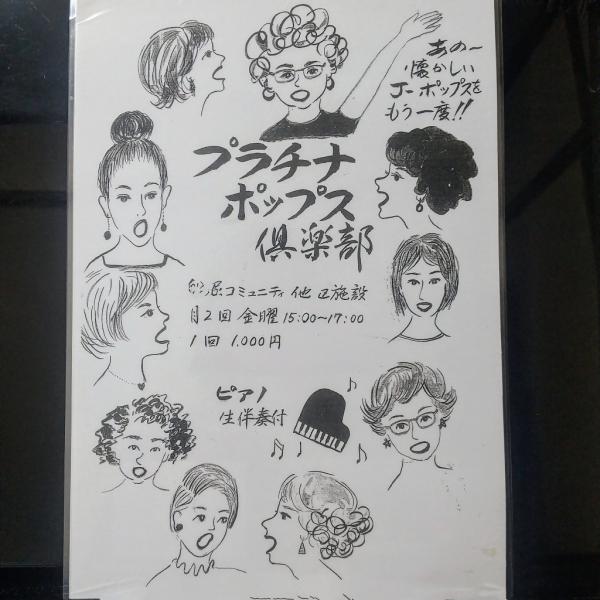 あの〜
懐かしい
J-ポップスを
もう一度!!
プラチナ
ポップス
倶楽部
コミュニティ 他 区施設
月2回 金曜 15:00〜17:00
1回 1,000円
ピアノ
生伴奏付